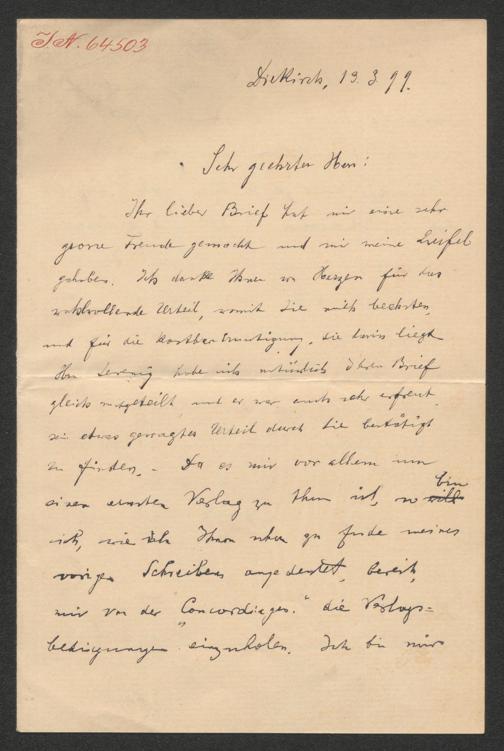 J.N. 64503
Diekirch, 13. 3 99.
Sehr geehrter Herr:
Ihr lieber Brief hat mir eine sehr
grosse Freude gemacht und mir meine Zweifel
gehoben. Ich danke Ihnen von Herzen für das
wohlwollende Urteil, womit Sie mich beehrten,
und für die kostbare Ermutigung, die darin liegt
Herrn habe ich natürlich Ihren Brief
gleich mitgeteilt und er war auch sehr erfreut
sein etwas gewagtes Urteil durch Sie bestätigt
zu finden. - Da es mir vor allem um
einen ernsten Verlag zu thun ist, so bin
ich, wie ich Ihnen schon zu Ende meines
vorigen Schreibens angedeutet, bereit,
mir von der "Concordiages." die Verlags=
bedingungen einzuholen. Ich bin mir